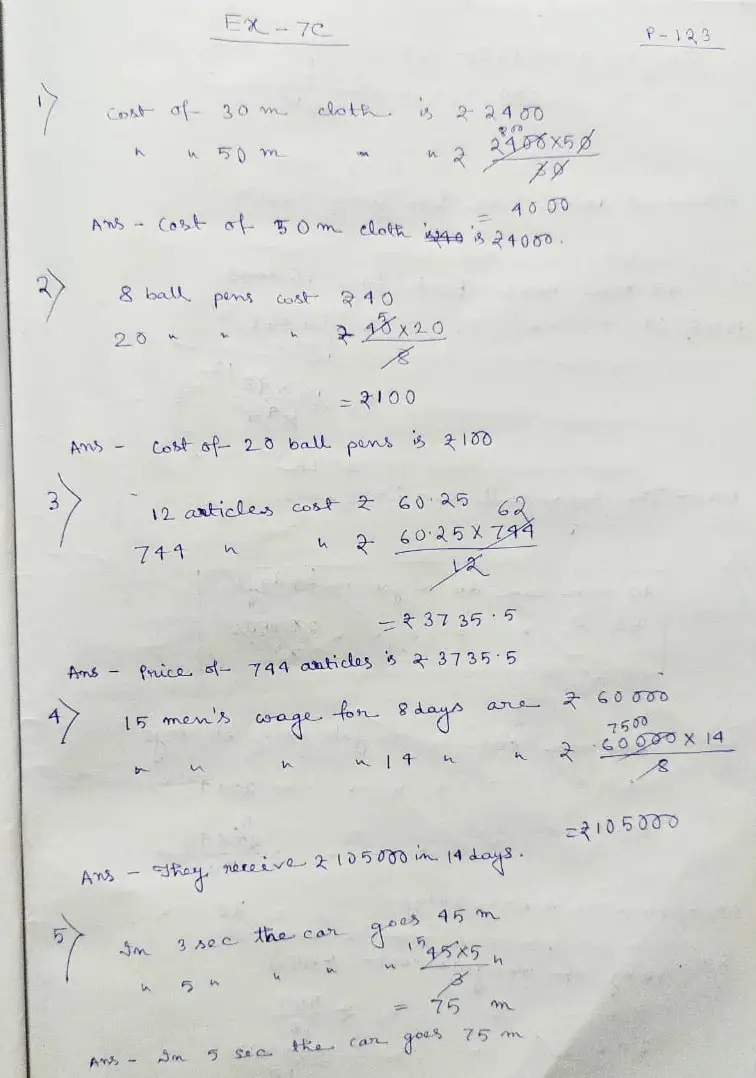 Ex - 7C
P-123
1) Cost of 30 m cloth is ₹ 2400
" " 50 m " " ₹ 2400×50/30
= 4000
Ans - Cost of 50 m cloth is ₹4000.
2) 8 ball pens cost ₹40
20 " " " ₹ 40×20/8
= ₹100
Ans - Cost of 20 ball pens is ₹100
3) 12 articles cost ₹ 60.25
744 " " ₹ 60.25 × 744/12
= ₹ 3735.5
Ans - Price of 744 articles is ₹ 3735.5
4) 15 men's wage for 8 days are ₹ 60000
" " " " 14 " " ₹ 60000 × 14/8
= ₹105000
Ans - They receive ₹ 105000 in 14 days.
5) In 3 sec the car goes 45 m
" 5 " " " " 45×5/3 "
= 75 m
Ans - In 5 sec the car goes 75 m